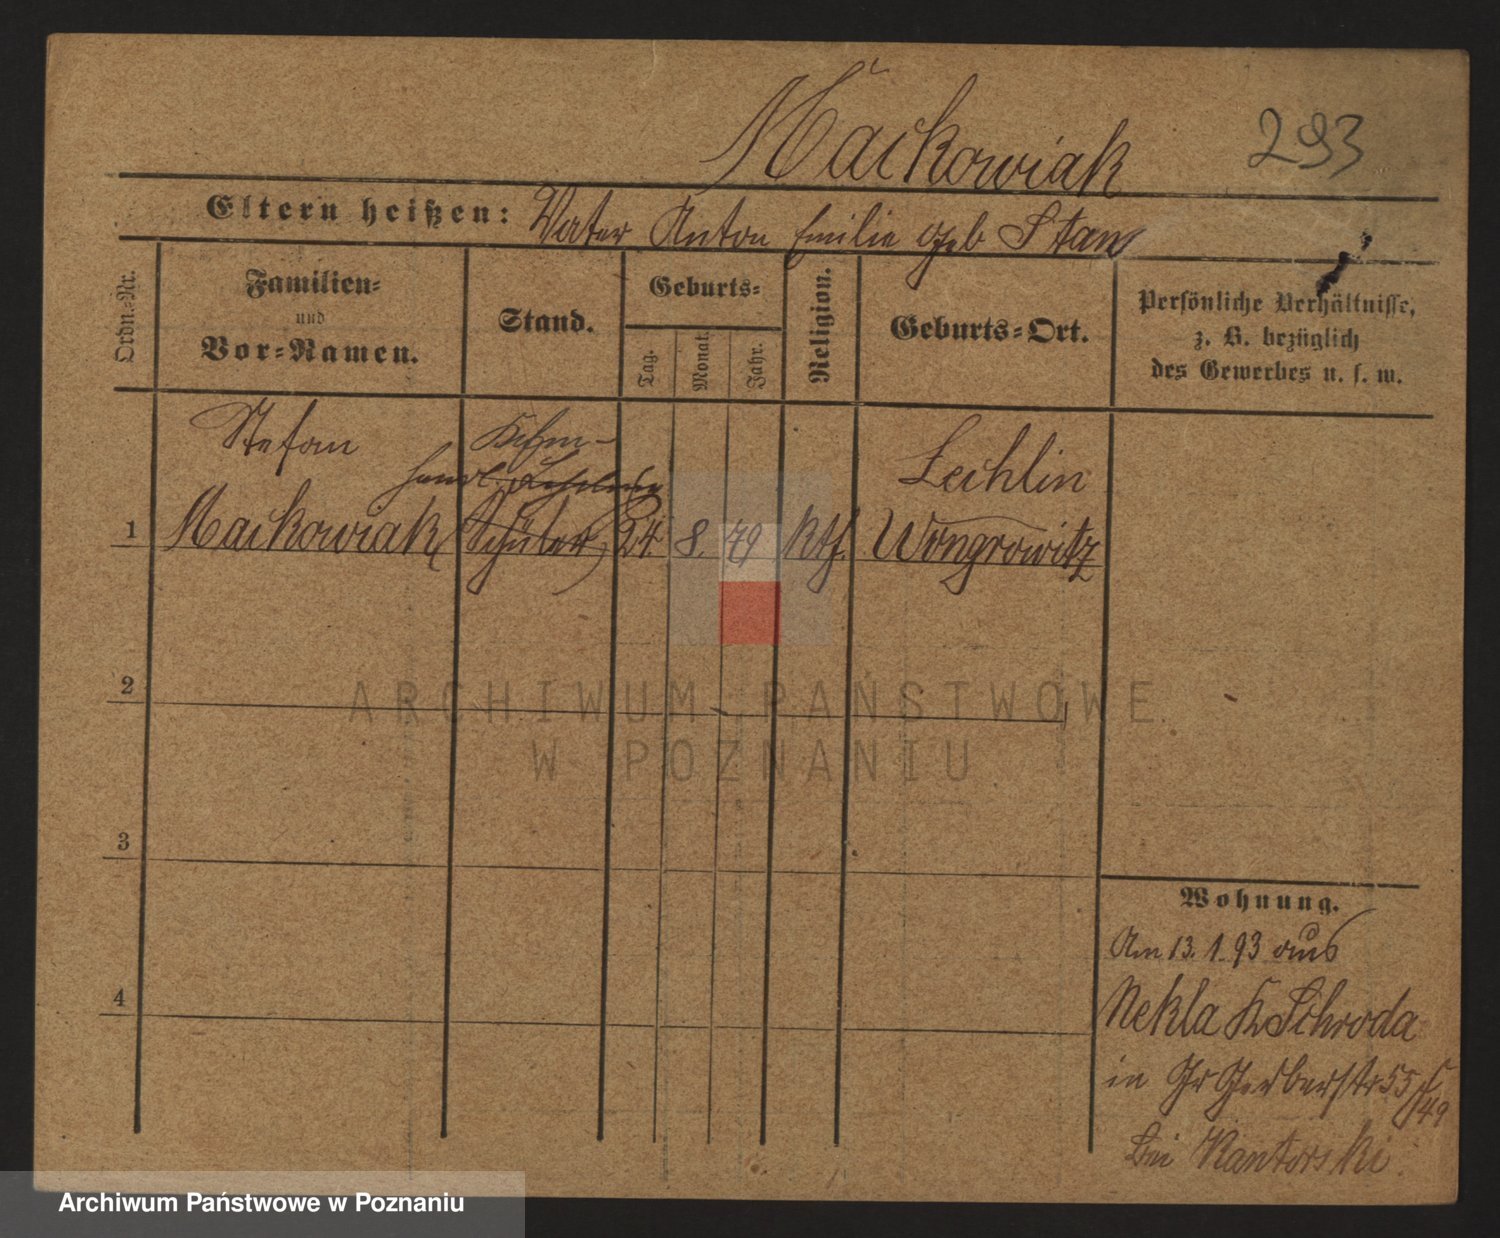 Maćkowiak 293
Eltern heißen: Vater Anton Emilie geb Stam
Ordn.-Nr.
Familien-
und
Vor-Namen.
Stand.
Geburts-
Tag.
Monat.
Jahr.
Religion.
Geburts-Ort.
Persönliche Verhältnisse,
z. B. bezüglich
des Gewerbes u. s. w.
Stefan
Lechlin
1 Mackowiak Schüler 24 8. 79 kth. Wongrowitz
2
3
4
Wohnung.
Am 13. 1. 93 aus
Nekla K Schroda
in Gr Gerberstr 55
bei Kantorski.
ARCHIWUM PAŃSTWOWE
W POZNANIU
Archiwum Państwowe w Poznaniu